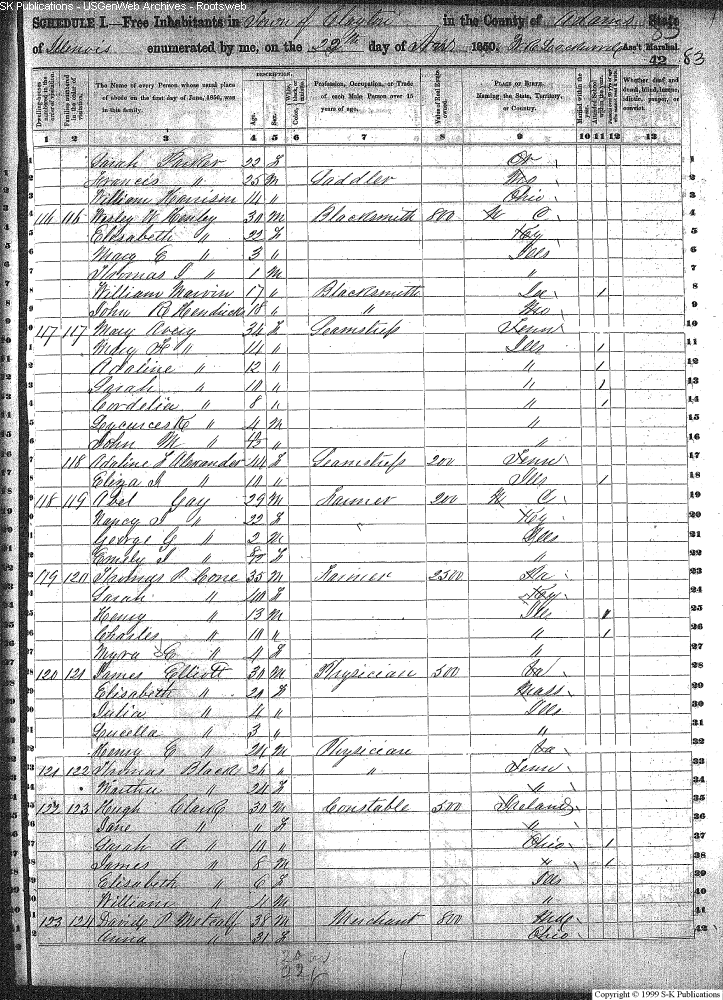 SK Publications - USGenWeb Archives - Rootsweb
SCHEDULE I.—Free Inhabitants in Town of Clayton in the County of Adams State
of Illinois enumerated by me, on the 22th day of Nov 1850. Ass't Marshal.
42 83
Dwelling-houses numbered in the order of visitation.
Families numbered in the order of visitation.
The Name of every Person whose usual place of abode on the first day of June, 1850, was in this family.
DESCRIPTION.
Age.
Sex.
White, black, or mulatto.
Color,
Profession, Occupation, or Trade of each Male Person over 15 years of age.
Value of Real Estate owned.
PLACE OF BIRTH. Naming the State, Territory, or Country.
Married within the year.
Whether deaf and dumb, blind, insane, idiotic, pauper, or convict.
1 2 3 4 5 6 7 8 9 10 11 12 13
1 Sarah Parker 22 f 1
2 Francis " 25 m Saddler 2
3 William Harrison 14 " Ohio 3
4 116 116 Wesley W Henley 30 m Blacksmith 800 N C 4
5 Elisabeth " 22 f Ky 5
6 Mary E " 3 " Ills 6
7 Thomas J " 1 m " 7
8 William Marvin 17 " Blacksmith 1 8
9 John R Hendricks 18 " " Mo 9
10 117 117 Mary Avery 34 f Seamstress Tenn 10
11 Mary " 14 " Ills 1 11
12 Adaline " 12 " " 1 12
13 Sarah " 10 " " 1 13
14 Cordelia " 8 " " 1 14
15 " 4 m " 15
16 John M " " " 16
17 118 Adaline L Alexander 44 f Seamstress 200 Tenn 17
18 Eliza " 10 " Ills 1 18
19 118 119 Abel Gay 29 m Farmer 200 N C 19
20 Nancy J " 22 f Ky 20
21 George G " 2 m Ills 21
22 Emily J " f " 22
23 119 120 Thomas P Cone 35 m Farmer 2500 23
24 Sarah " 40 f Ky 24
25 Henry " 13 m Ills 1 25
26 Charles " 10 " " 1 26
27 Myra E " 4 f " 27
28 120 121 James Elliott 30 m Physician 500 28
29 Elisabeth " 20 f Mass 29
30 Julia " 4 " Ills 30
31 Lucella " 3 " " 31
32 Henry E " 24 m Physician 32
33 121 122 Thomas Black 26 " " Tenn 33
34 Martha " 24 f " 34
35 122 123 Hugh Clark 30 m Constable 500 Ireland 35
36 Jane " " f " 36
37 Sarah A " 10 " Ohio 1 37
38 James " 8 m " 1 38
39 Elisabeth " 6 f Ills 39
40 William " 4 m " 40
41 123 124 David P Metcalf 38 m Merchant 800 41
42 Anna " 31 f Ohio 42
Copyright © 1999 S-K Publications